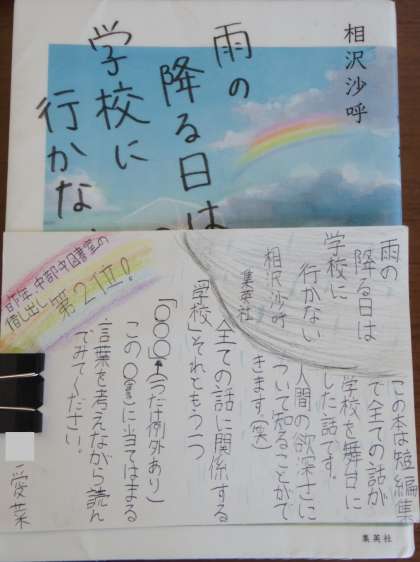 相沢沙呼
雨の
降る日は
学校に
行かな
雨の
降る日は
学校に
行かない
相沢沙呼
集英社
昨年、中部中図書室の
借し出し
第2位!
この本は短編集
で全ての話が
学校を舞台に
した話です。
人間の欲深さに
ついて知ることがで
きます。(笑)
全ての話に関係する
「学校」それともう一つ
「〇〇〇」(1つだけ例外あり)
この〇(字)に当てはまる
言葉を考えながら読ん
でみてください。
愛菜
集英社